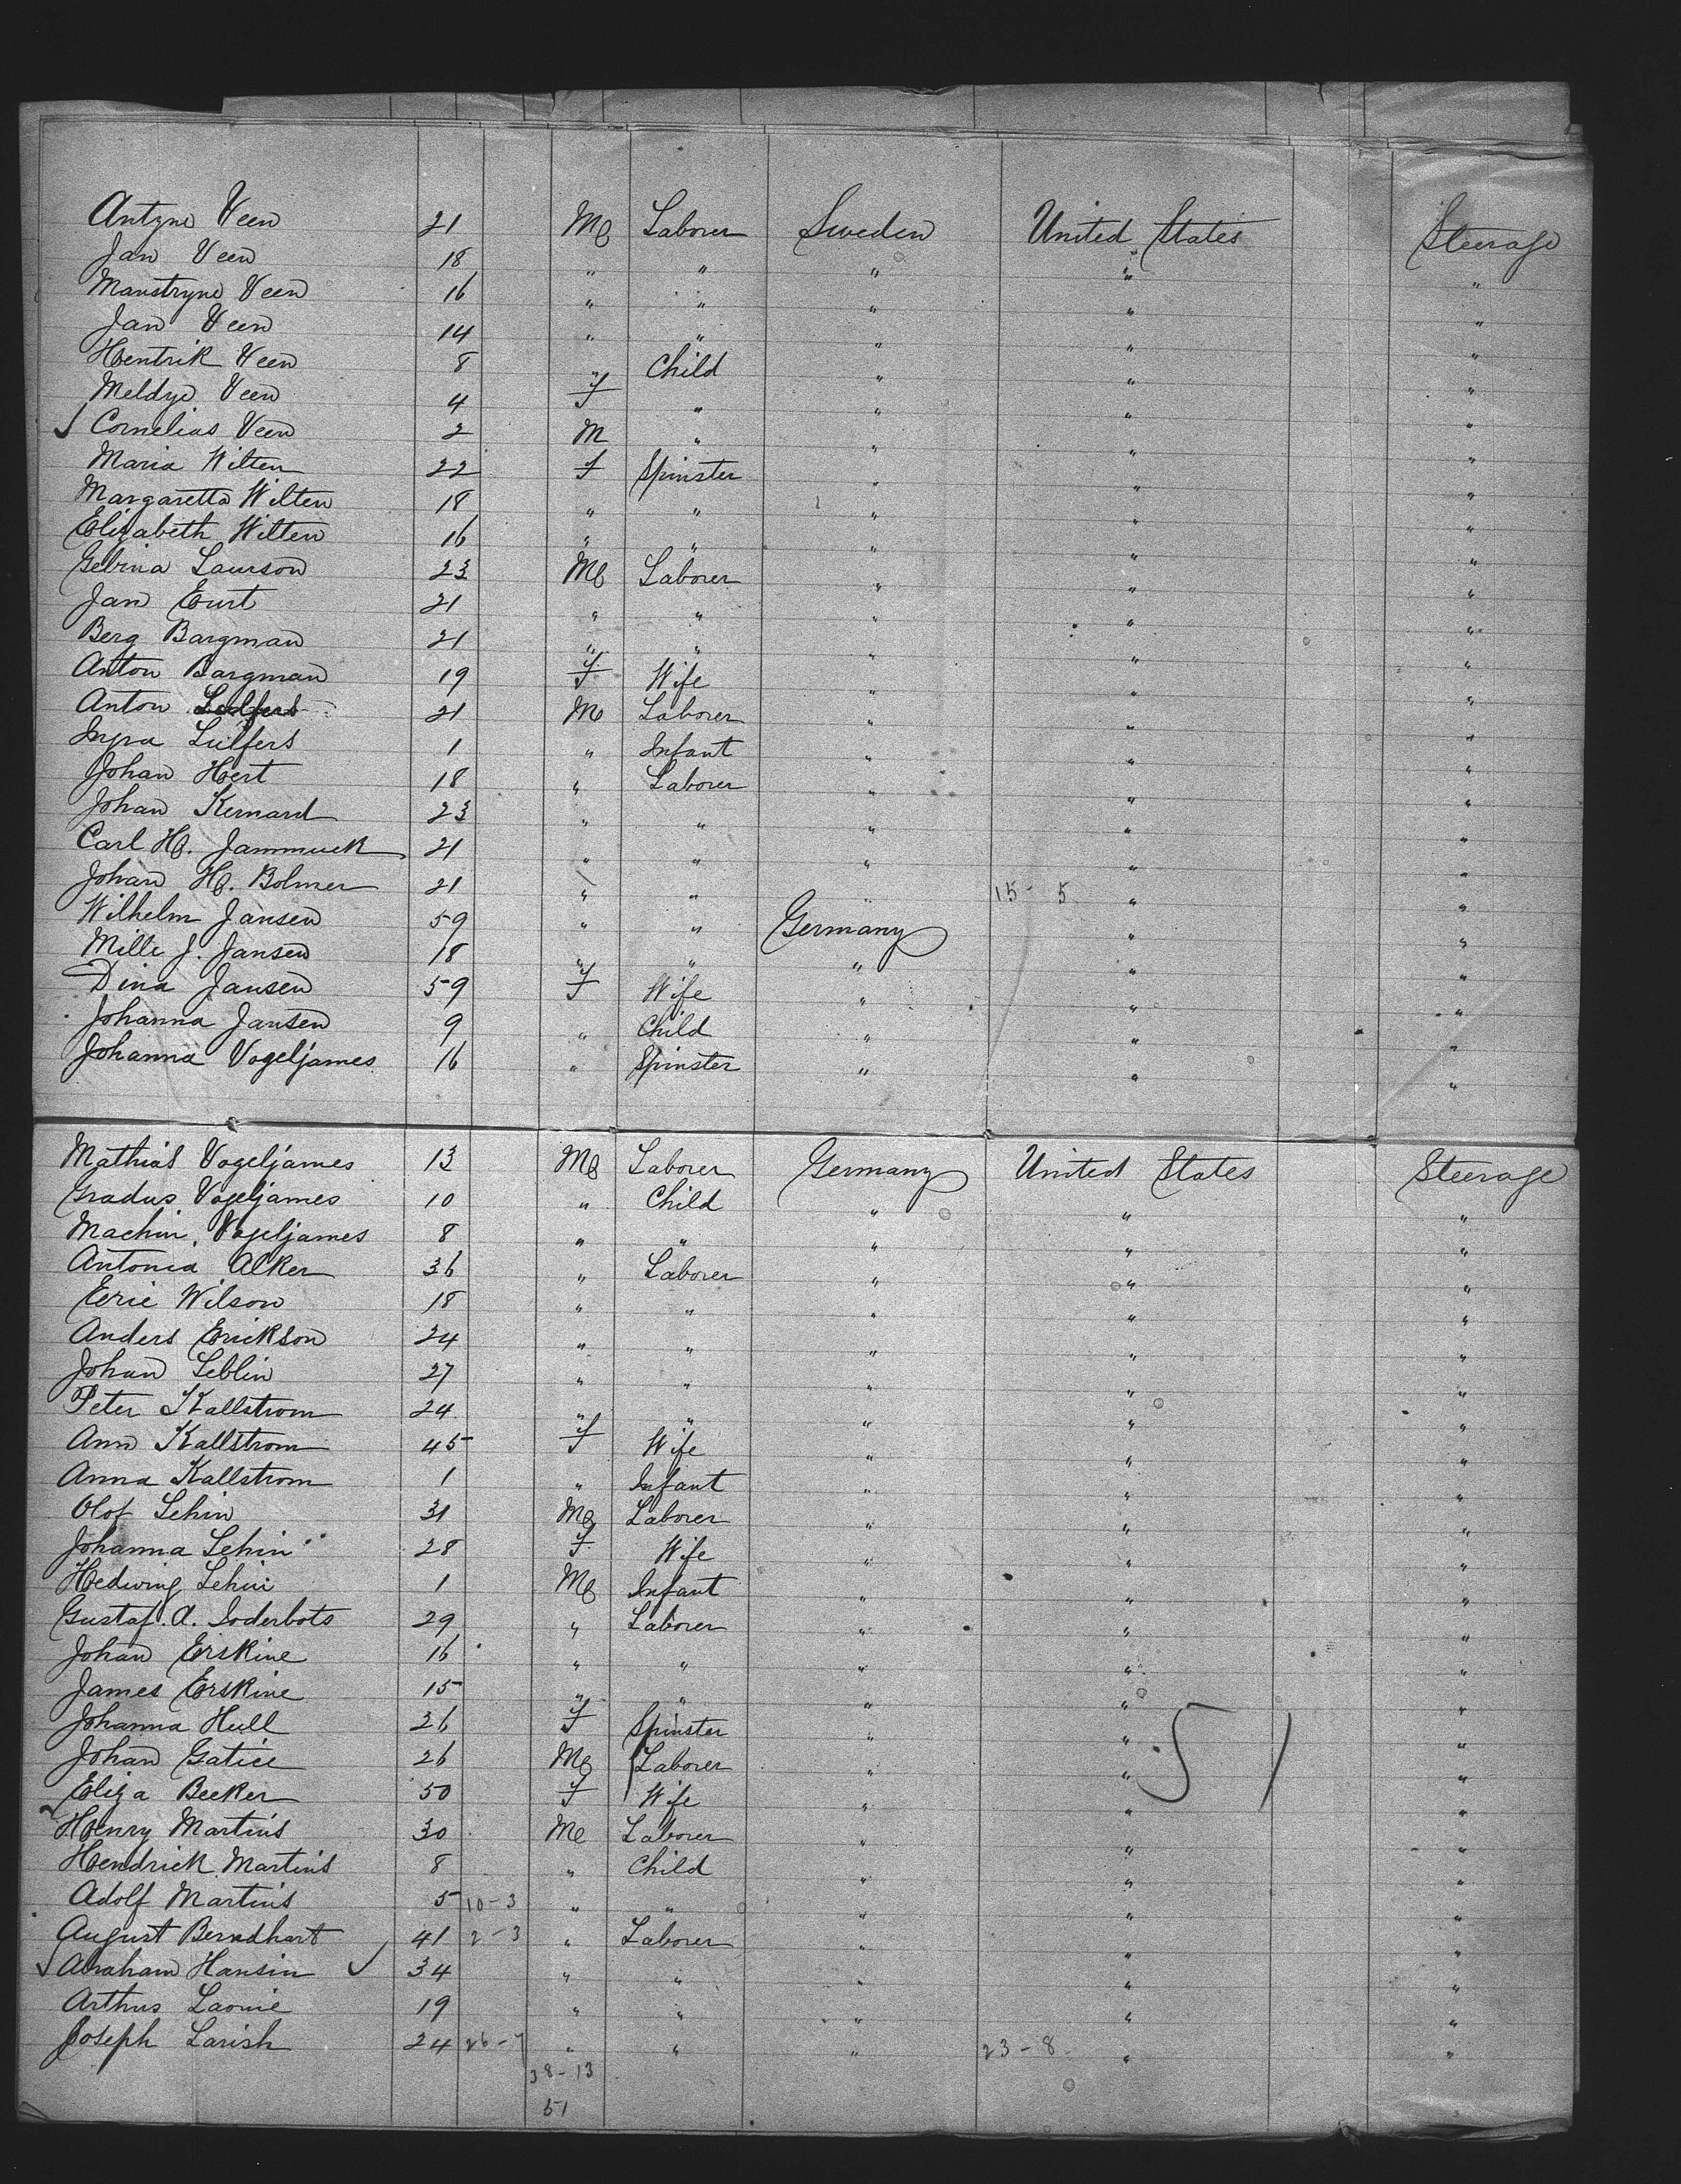 Antyne Veen 21 M Laborer Sweden United States Steerage
Jan Veen 18 " " " " "
Manstryne Veen 16 " " " " "
Jan Veen 14 " " " " "
Hentrik Veen 8 " Child " " "
Meldye Veen 4 F " " " "
✓ Cornelias Veen 2 M " " " "
Maria Wilten 22 F Spinster " " "
Margaretta Wilten 18 " " " " "
Elizabeth Wilten 16 " " " " "
Gebina Laurson 23 M Laborer " " "
Jan Eurt 21 " " " " "
Berg Bargman 21 " " " " "
Anton Bargman 19 F Wife " " "
Anton Lulfers 21 M Laborer " " "
Inpra Lulfers 1 " Infant " " "
Johan Hert 18 " Laborer " " "
Johan Kernard 23 " " " " "
Carl H. Jammuck 21 " " " " "
Johan H. Bolmer 21 " " " 15-5 " "
Wilhelm Jansen 59 " " Germany " "
Mille J. Jansen 18 " " " " "
Dina Jansen 59 F Wife " " "
Johanna Jansen 9 " Child " " "
Johanna Vogeljames 16 " Spinster " " "
Mathias Vogeljames 13 M Laborer Germany United States Steerage
Gradus Vogeljames 10 " Child " " "
Machin Vogeljames 8 " " " " "
Antonia Alker 36 " Laborer " " "
Eerie Wilson 18 " " " " "
Anders Erickson 24 " " " " "
Johan Leblin 27 " " " " "
Peter Kallstrom 24 " " " " "
Ann Kallstrom 45 F Wife " " "
Anna Kallstrom 1 " Infant " " "
Olof Lehin 31 M Laborer " " "
Johanna Lehin 28 F Wife " " "
Hedwing Lehin 1 M Infant " " "
Gustaf. A. Soderbots 29 " Laborer " " "
Johan Erskine 16 " " " " "
James Erskine 15 " " " " "
Johanna Hull 26 F Spinster " " "
Johan Gatice 26 M Laborer " " "
51
Eliza Becker 50 F Wife " " "
Henry Martins 30 M Laborer " " "
Hendrick Martins 8 " Child " " "
Adolf Martins 5 10-3 " " " " "
August Berndhart 41 2-3 " Laborer " " "
✓ Abraham Hansin ✓ 34 " " " " "
Arthus Laonie 19 " " " " "
Joseph Larish 24 26-7 " " " 23-8 " "
38-13
51